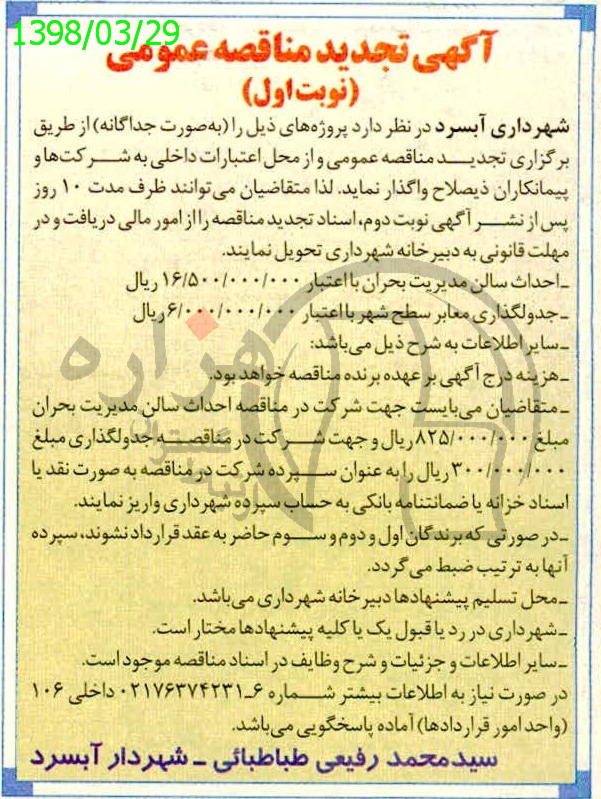 1398/03/29
آگهی تجدید مناقصه عمومی
(نوبت اول)
شهرداری آبسرد در نظر دارد پروژه‌های ذیل را (به‌صورت جداگانه) از طریق
برگزاری تجدیـــد مناقصه عمومی و از محل اعتبارات داخلی به شـــرکت‌ها و
پیمانکاران ذیصلاح واگذار نماید. لذا متقاضیان می‌توانند ظرف مدت ۱۰ روز
پس از نشـــر آگهی نوبت دوم، اسناد تجدید مناقصه را از امور مالی دریافت و در
مهلت قانونی به دبیرخانه شهرداری تحویل نمایند.
ـ احداث سالن مدیریت بحران با اعتبار ۱۶/۵۰۰/۰۰۰/۰۰۰ ریال
ـ جدولگذاری معابر سطح شهر با اعتبار ۶/۰۰۰/۰۰۰/۰۰۰ ریال
ـ سایر اطلاعات به شرح ذیل می‌باشد:
ـ هزینه درج آگهی بر عهده برنده مناقصه خواهد بود.
ـ متقاضیان می‌بایست جهت شرکت در مناقصه احداث سالن مدیریت بحران
مبلغ ۸۲۵/۰۰۰/۰۰۰ ریال و جهت شـــرکت در مناقصـــه جدولگذاری مبلغ
۳۰۰/۰۰۰/۰۰۰ ریال را به عنوان ســـپرده شرکت در مناقصه به صورت نقد یا
اسناد خزانه یا ضمانتنامه بانکی به حساب سپرده شهرداری واریز نمایند.
ـ در صورتی که برندگان اول و دوم و ســـوم حاضر به عقد قرارداد نشوند، سپرده
آنها به ترتیب ضبط می‌گردد.
ـ محل تسلیم پیشنهادها دبیرخانه شهرداری می‌باشد.
ـ شهرداری در رد یا قبول یک یا کلیه پیشنهادها مختار است.
ـ سایر اطلاعات و جزئیات و شرح وظایف در اسناد مناقصه موجود است.
در صورت نیاز به اطلاعات بیشتر شـــماره ۶ـ۰۲۱۷۶۳۷۴۲۳۱ داخلی ۱۰۶
(واحد امور قراردادها) آماده پاسخگویی می‌باشد.
سیدمحمد رفیعی طباطبائی ـ شهردار آبسرد
هزاره